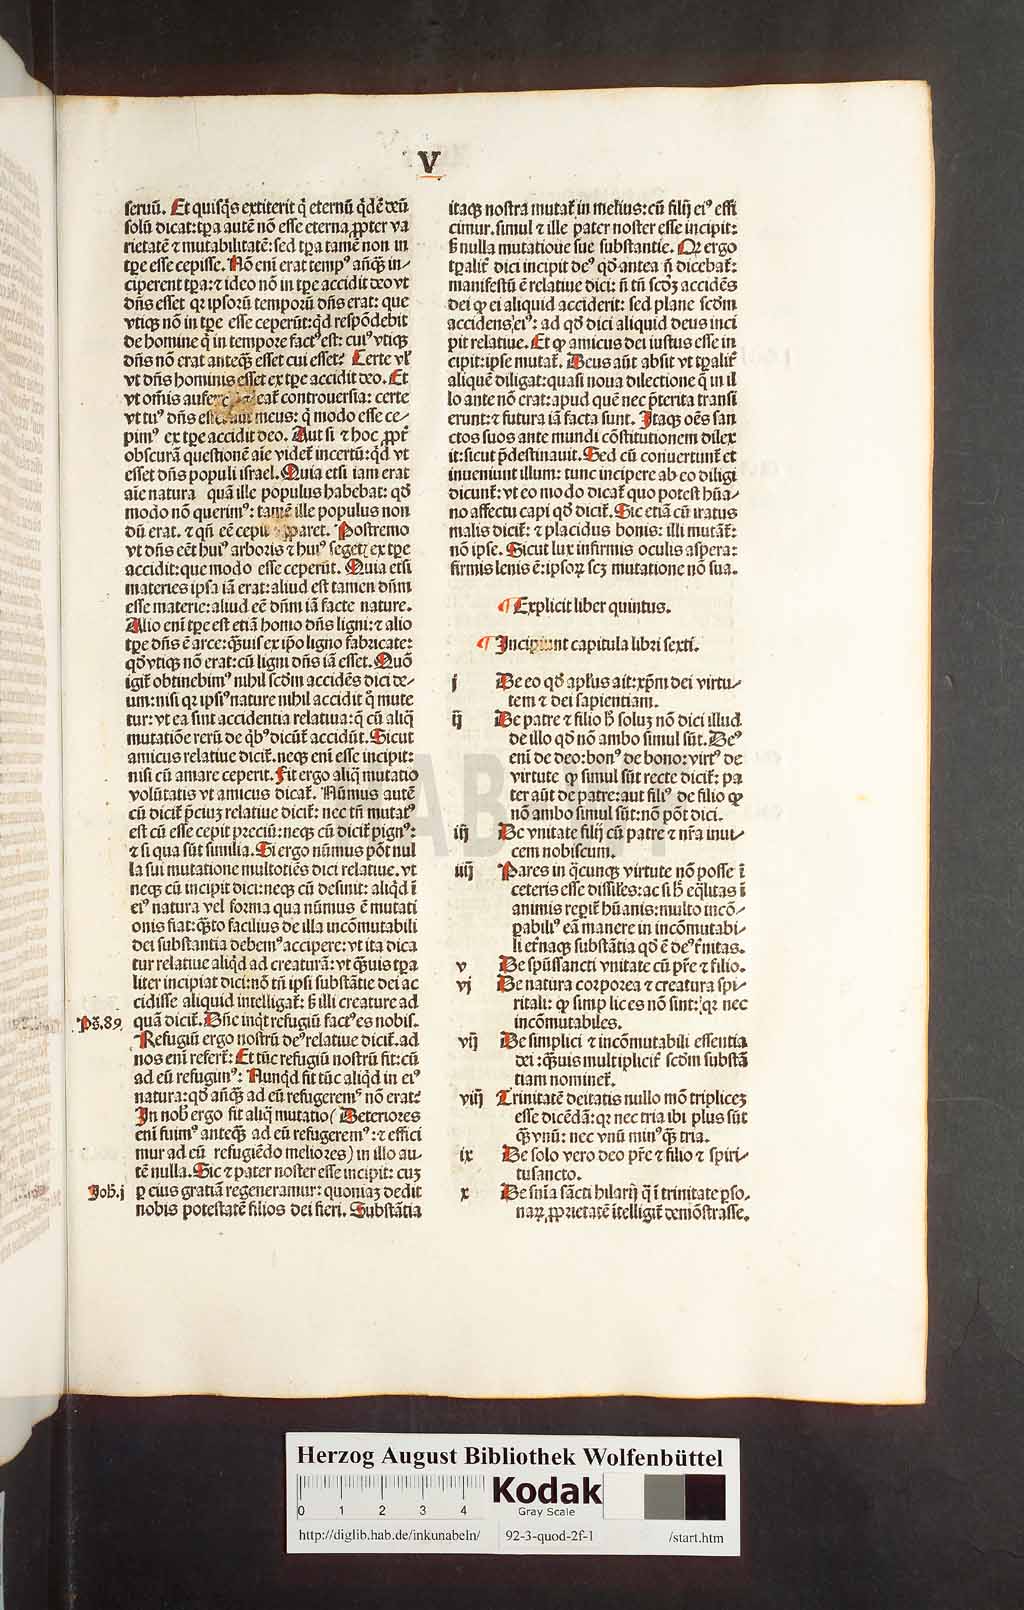 V
seruū. Et quisq̄s extiterit q̄ eternū q̄dē deū
solū dicat: tp̄a autē nō esse eterna ꝓpter va
rietatē ⁊ mutabilitatē: sed tp̄a tamē non in
tp̄e esse cepisse. Nō eni erat tempꝰ anq̄ꝫ in⸗
ciperent tp̄a: ⁊ ideo nō in tp̄e accidit deo vt
dn̄s esset qꝛ ipsoꝝ temporū dn̄s erat: que
vtiqꝫ nō in tp̄e esse ceperūt: qd respōdebit
de homine q̄ in tempore factꝰ est: cuiꝰ vtiqꝫ
dn̄s nō erat anteq̄ꝫ esset cui esset? Certe vl̓
vt dn̄s hominis esset ex tp̄e accidit deo. Et
vt om̄is aufer eat̄ controuersia: certe
vt tuꝰ dn̄s esset aut meus: q̄ modo esse ce⸗
pimꝰ ex tp̄e accidit deo. Aut si ⁊ hoc ꝓpt̄
obscurā questionē aīe videt̄ incertū: qd vt
esset dn̄s populi israel. Quia etsi iam erat
aīe natura quā ille populus habebat: qd̄
modo nō querimꝰ: tamē ille populus non
dū erat. ⁊ qn̄ eē cepit apparet. Postremo
vt dn̄s eēt huiꝰ arboris ⁊ huiꝰ segetꝭ ex tp̄e
accidit: que modo esse ceperūt. Quia etsi
materies ipsa iā erat: aliud est tamen dn̄m
esse materie: aliud eē dn̄m iā facte nature.
Alio eni tp̄e est etiā homo dn̄s ligni: ⁊ alio
tp̄e dn̄s ē arce: q̄uis ex ip̄o ligno fabricate:
qd̄ vtiqꝫ nō erat: cū ligni dn̄s iā esset. Quō
igit̄ obtinebimꝰ nihil scd̄m accidēs dici de⸗
um: nisi qꝛ ipsiꝰ nature nihil accidit q̄ mute
tur: vt ea sint accidentia relatiua: q̄ cū aliq̄
mutatiōe rerū de qbꝰ dicūt̄ accidūt. Sicut
amicus relatiue dicit̄. neqꝫ eni esse incipit:
nisi cū amare ceperit. Fit ergo aliq̄ mutatio
volūtatis vt amicus dicat̄. Nūmus autē
cū dicit̄ p̄ciuꝫ relatiue dicit̄: nec tn̄ mutatꝰ
est cū esse cepit preciū: neqꝫ cū dicit̄ pignꝰ:
⁊ si qua sūt similia. Si ergo nūmus pōt nul
la sui mutatione multotiēs dici relatiue. vt
neqꝫ cū incipit dici: neqꝫ cū desinit: aliqd ī
eiꝰ natura vel forma qua nūmus ē mutati
onis fiat: q̄ꝫto facilius de illa incōmutabili
dei substantia debemꝰ accipere: vt ita dica
tur relatiue aliqd ad creaturā: vt q̄uis tp̄a
liter incipiat dici: nō tn̄ ipsi substātie dei ac
cidisse aliquid intelligat̄: s̄ illi creature ad
Ps̄. 89. quā dicit̄. Dn̄e inqt refugiū factꝰ es nobis.
Refugiū ergo nostrū deꝰ relatiue dicit̄. ad
nos eni refert̄: Et tūc refugiū nostrū fit: cū
ad eū refugimꝰ: Nunqd fit tūc aliqd in eiꝰ
natura: qd̄ anq̄ꝫ ad eū refugeremꝰ nō erat?
In nob̄ ergo fit aliq̄ mutatio (Deteriores
eni fuimꝰ anteq̄ꝫ ad eū refugeremꝰ: ⁊ effici
mur ad eū refugiēdo meliores) in illo au⸗
tē nulla. Sic ⁊ pater noster esse incipit: cuꝫ
Joh̄. j ꝑ eius gratiā regeneramur: quoniaꝫ dedit
nobis potestatē filios dei fieri. Substātia
itaqꝫ nostra mutat̄ in melius: cū filij eiꝰ effi
cimur. simul ⁊ ille pater noster esse incipit:
s̄ nulla mutatione sue substantie. Qꝛ ergo
tp̄alit̄ dici incipit deꝰ qd̄ antea n̄ dicebat̄:
manifestū ē relatiue dici: n̄ tn̄ scd̄ꝫ accidēs
dei ꝙ ei aliquid acciderit: sed plane scd̄m
accidens eiꝰ: ad qd̄ dici aliquid deus inci
pit relatiue. Et ꝙ amicus dei iustus esse in
cipit: ipse mutat̄. Deus aūt absit vt tp̄alit̄
aliquē diligat: quasi noua dilectione q̄ in il
lo ante nō erat: apud quē nec p̄terita transi
erunt: ⁊ futura iā facta sunt. Itaqꝫ oēs san
ctos suos ante mundi cōstitutionem dilex
it: sicut p̄destinauit. Sed cū conuertunt̄ et
inueniunt illum: tunc incipere ab eo diligi
dicunt̄: vt eo modo dicat̄ quo potest hūa⸗
no affectu capi qd̄ dicit̄. Sic etiā cū iratus
malis dicit̄: ⁊ placidus bonis: illi mutāt̄:
nō ipse. Sicut lux infirmis oculis aspera:
firmis lenis ē: ipsoꝝ scꝫ mutatione nō sua.
¶ Explicit liber quintus.
¶ Incipiunt capitula libri sexti.
j De eo qd̄ apl̄us ait: xp̄m dei virtu⸗
tem ⁊ dei sapientiam.
ij De patre ⁊ filio h̄ soluꝫ nō dici illud
de illo qd̄ nō ambo simul sūt. Deꝰ
eni de deo: bonꝰ de bono: virtꝰ de
virtute ꝙ simul sūt recte dicit̄: pa
ter aūt de patre: aut filiꝰ de filio ꝙ
nō ambo simul sūt: nō pōt dici.
iij De vnitate filij cū patre ⁊ nr̄a inui⸗
cem nobiscum.
iiij Pares in q̄cunqꝫ virtute nō posse ī
ceteris esse dissiles: ac si h̄ eq̄litas ī
animis reꝑit̄ hūanis: multo incō⸗
ꝑabiliꝰ eā manere in incōmutabi⸗
li et̄naqꝫ substātia qd̄ ē deꝰ t̄nitas.
v De spūssancti vnitate cū pr̄e ⁊ filio.
vj De natura corporea ⁊ creatura spi⸗
ritali: ꝙ simplices nō sint: qꝛ nec
incōmutabiles.
vij De simplici ⁊ incōmutabili essentia
dei: q̄uis multiplicit̄ scd̄m substā
tiam nominet̄.
viij Trinitatē deitatis nullo mō tripliceꝫ
esse dicēdā: qꝛ nec tria ibi plus sūt
q̄ꝫ vnū: nec vnū minꝰ q̄ꝫ tria.
ix De solo vero deo pr̄e ⁊ filio ⁊ spiri⸗
tusancto.
x De sn̄ia sācti hilarij q̄ ī trinitate ꝑso⸗
naꝝ ꝓprietatē ītelligit̄ demōstrasse.
HAB WF
Herzog August Bibliothek Wolfenbüttel
0 1 2 3 4
Kodak
Gray Scale
http://diglib.hab.de/inkunabeln/ 92-3-quod-2f-1 /start.htm